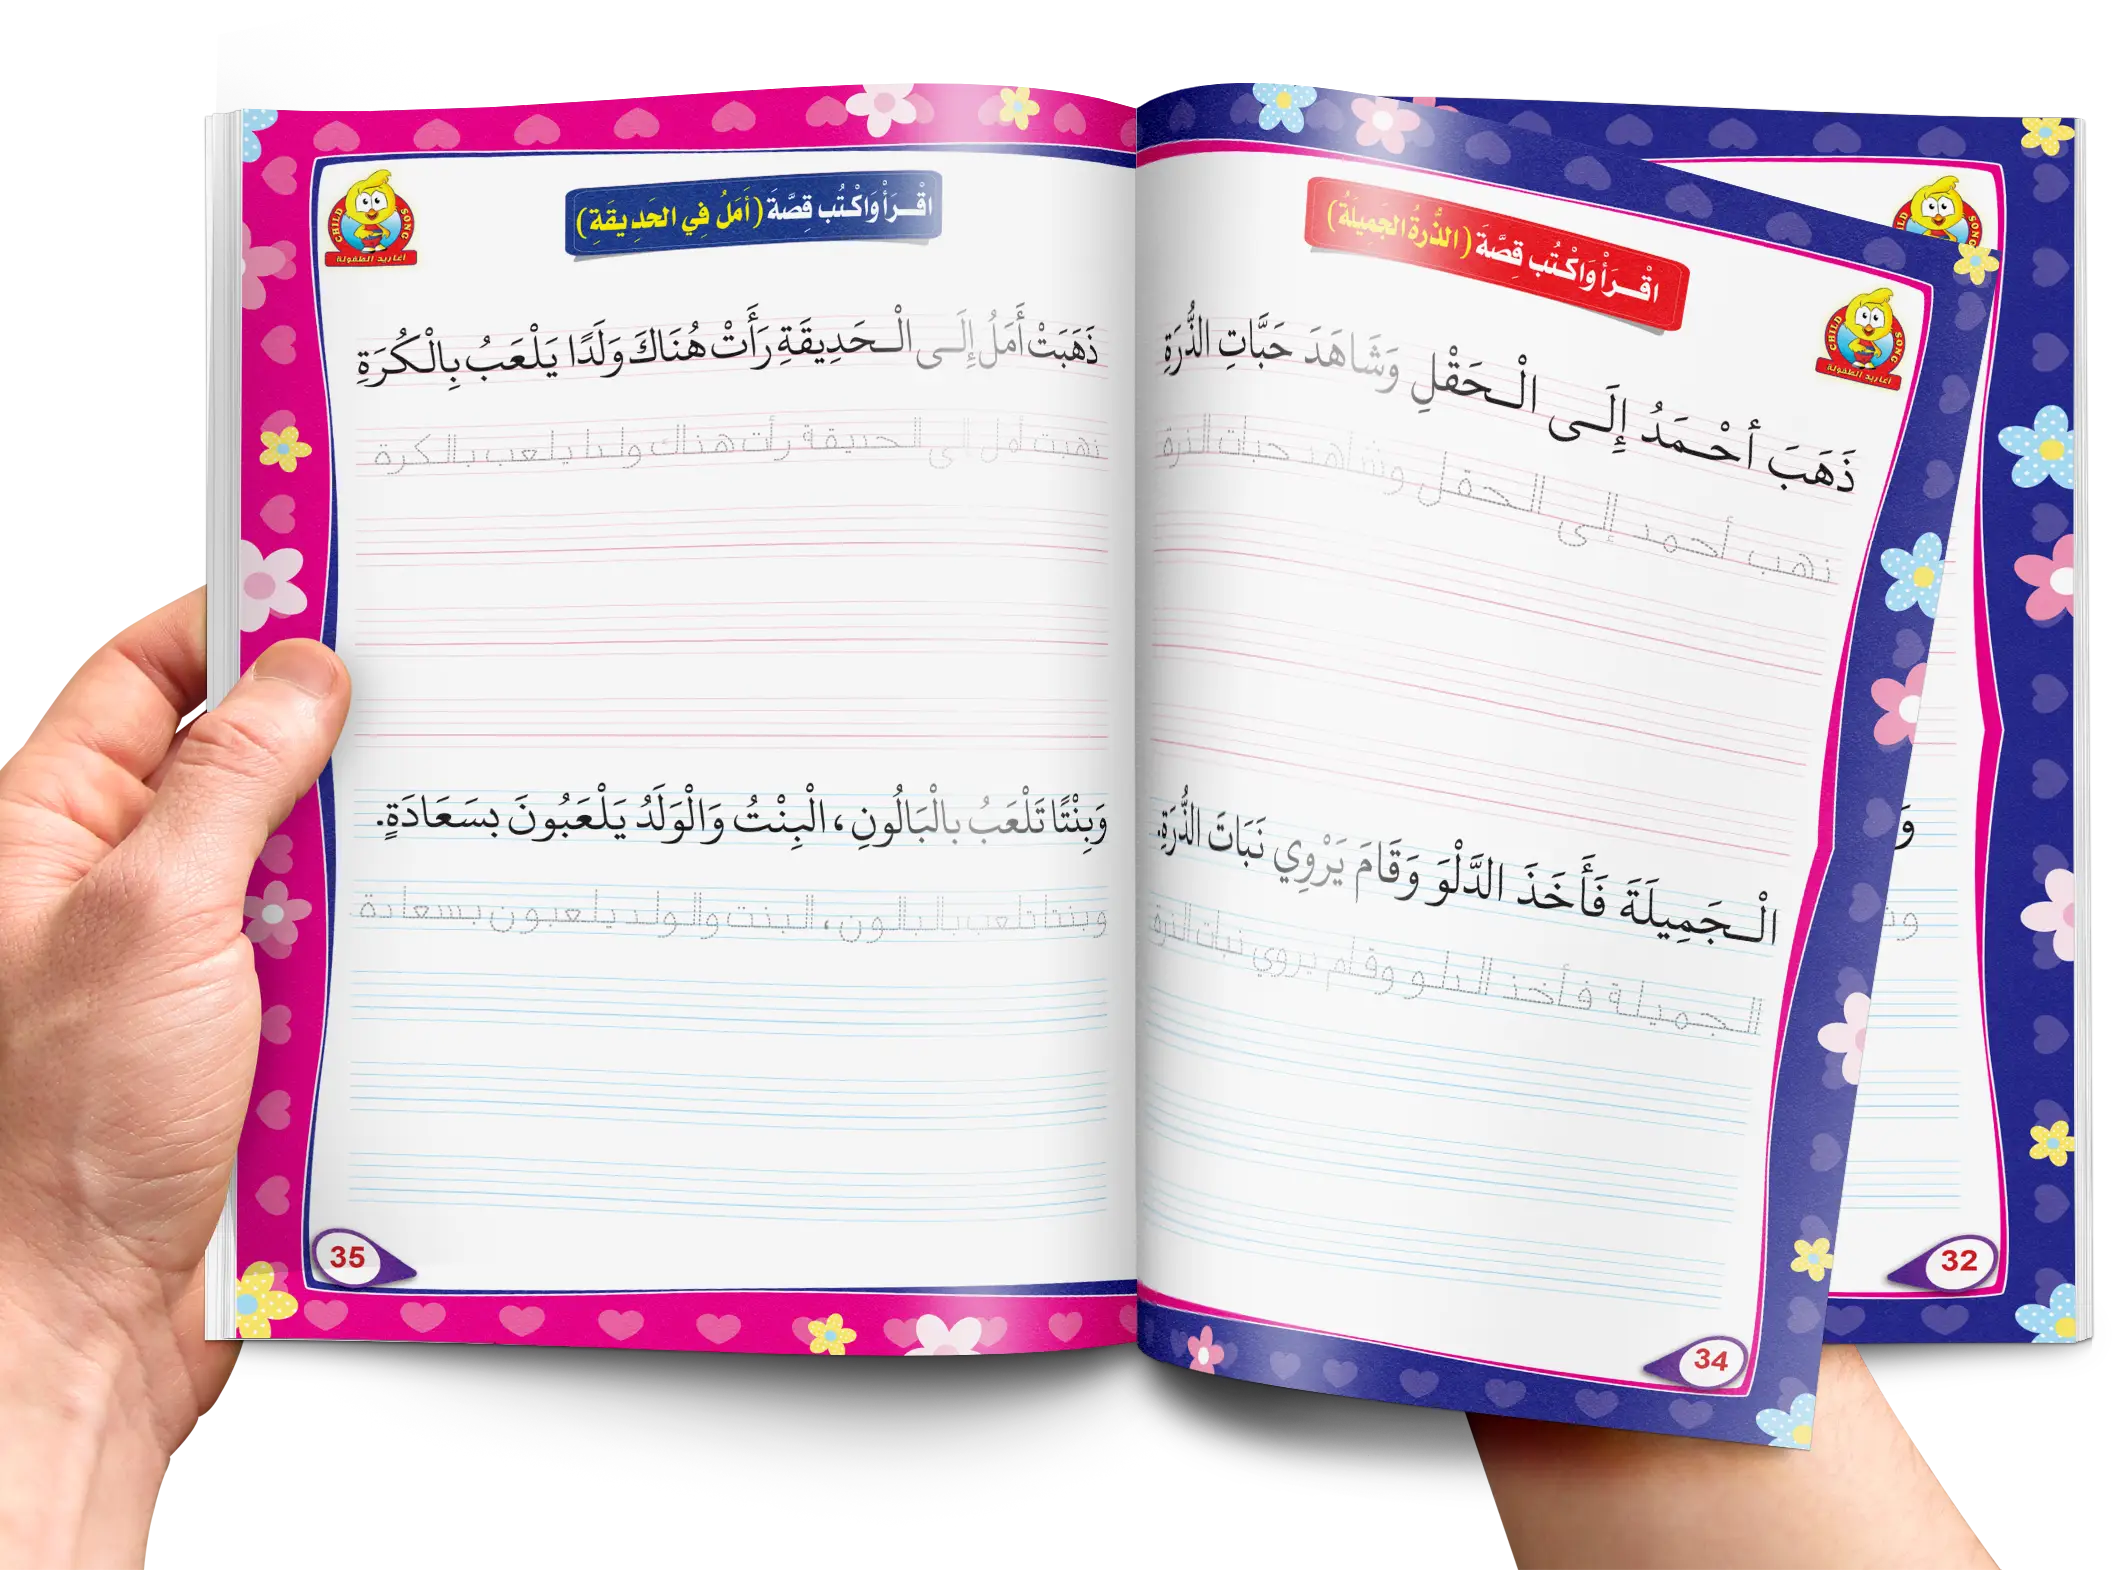 اقْرَأْ وَاكْتُب قِصَّةَ (الذُّرةُ الجَمِيلَةُ)
CHILD SONG
أغاريد الطفولة
ذَهَبَ أحْمَدُ إِلَى الْحَقْلِ وَشَاهَدَ حَبَّاتِ الذُّرَةِ
ذهب أحمد إلى الحقل وشاهد حبات الذرة
الْجَمِيلَةَ فَأَخَذَ الدَّلْوَ وَقَامَ يَرْوِي نَبَاتَ الذُّرَةِ.
الجميلة فأخذ الدلو وقام يروي نبات الذرة
34
اقْرَأْ وَاكْتُب قِصَّةَ (أَمَلُ فِي الحَدِيقَةِ)
CHILD SONG
أغاريد الطفولة
ذَهَبَتْ أَمَلُ إِلَى الْحَدِيقَةِ رَأَتْ هُنَاكَ وَلَدًا يَلْعَبُ بِالْكُرَةِ
ذهبت أمل إلى الحديقة رأت هناك ولدا يلعب بالكرة
وَبِنْتًا تَلْعَبُ بِالْبَالُونِ، الْبِنْتُ وَالْوَلَدُ يَلْعَبُونَ بسَعَادَةٍ.
وبنتا تلعب بالبالون، البنت والولد يلعبون بسعادة.
35
32